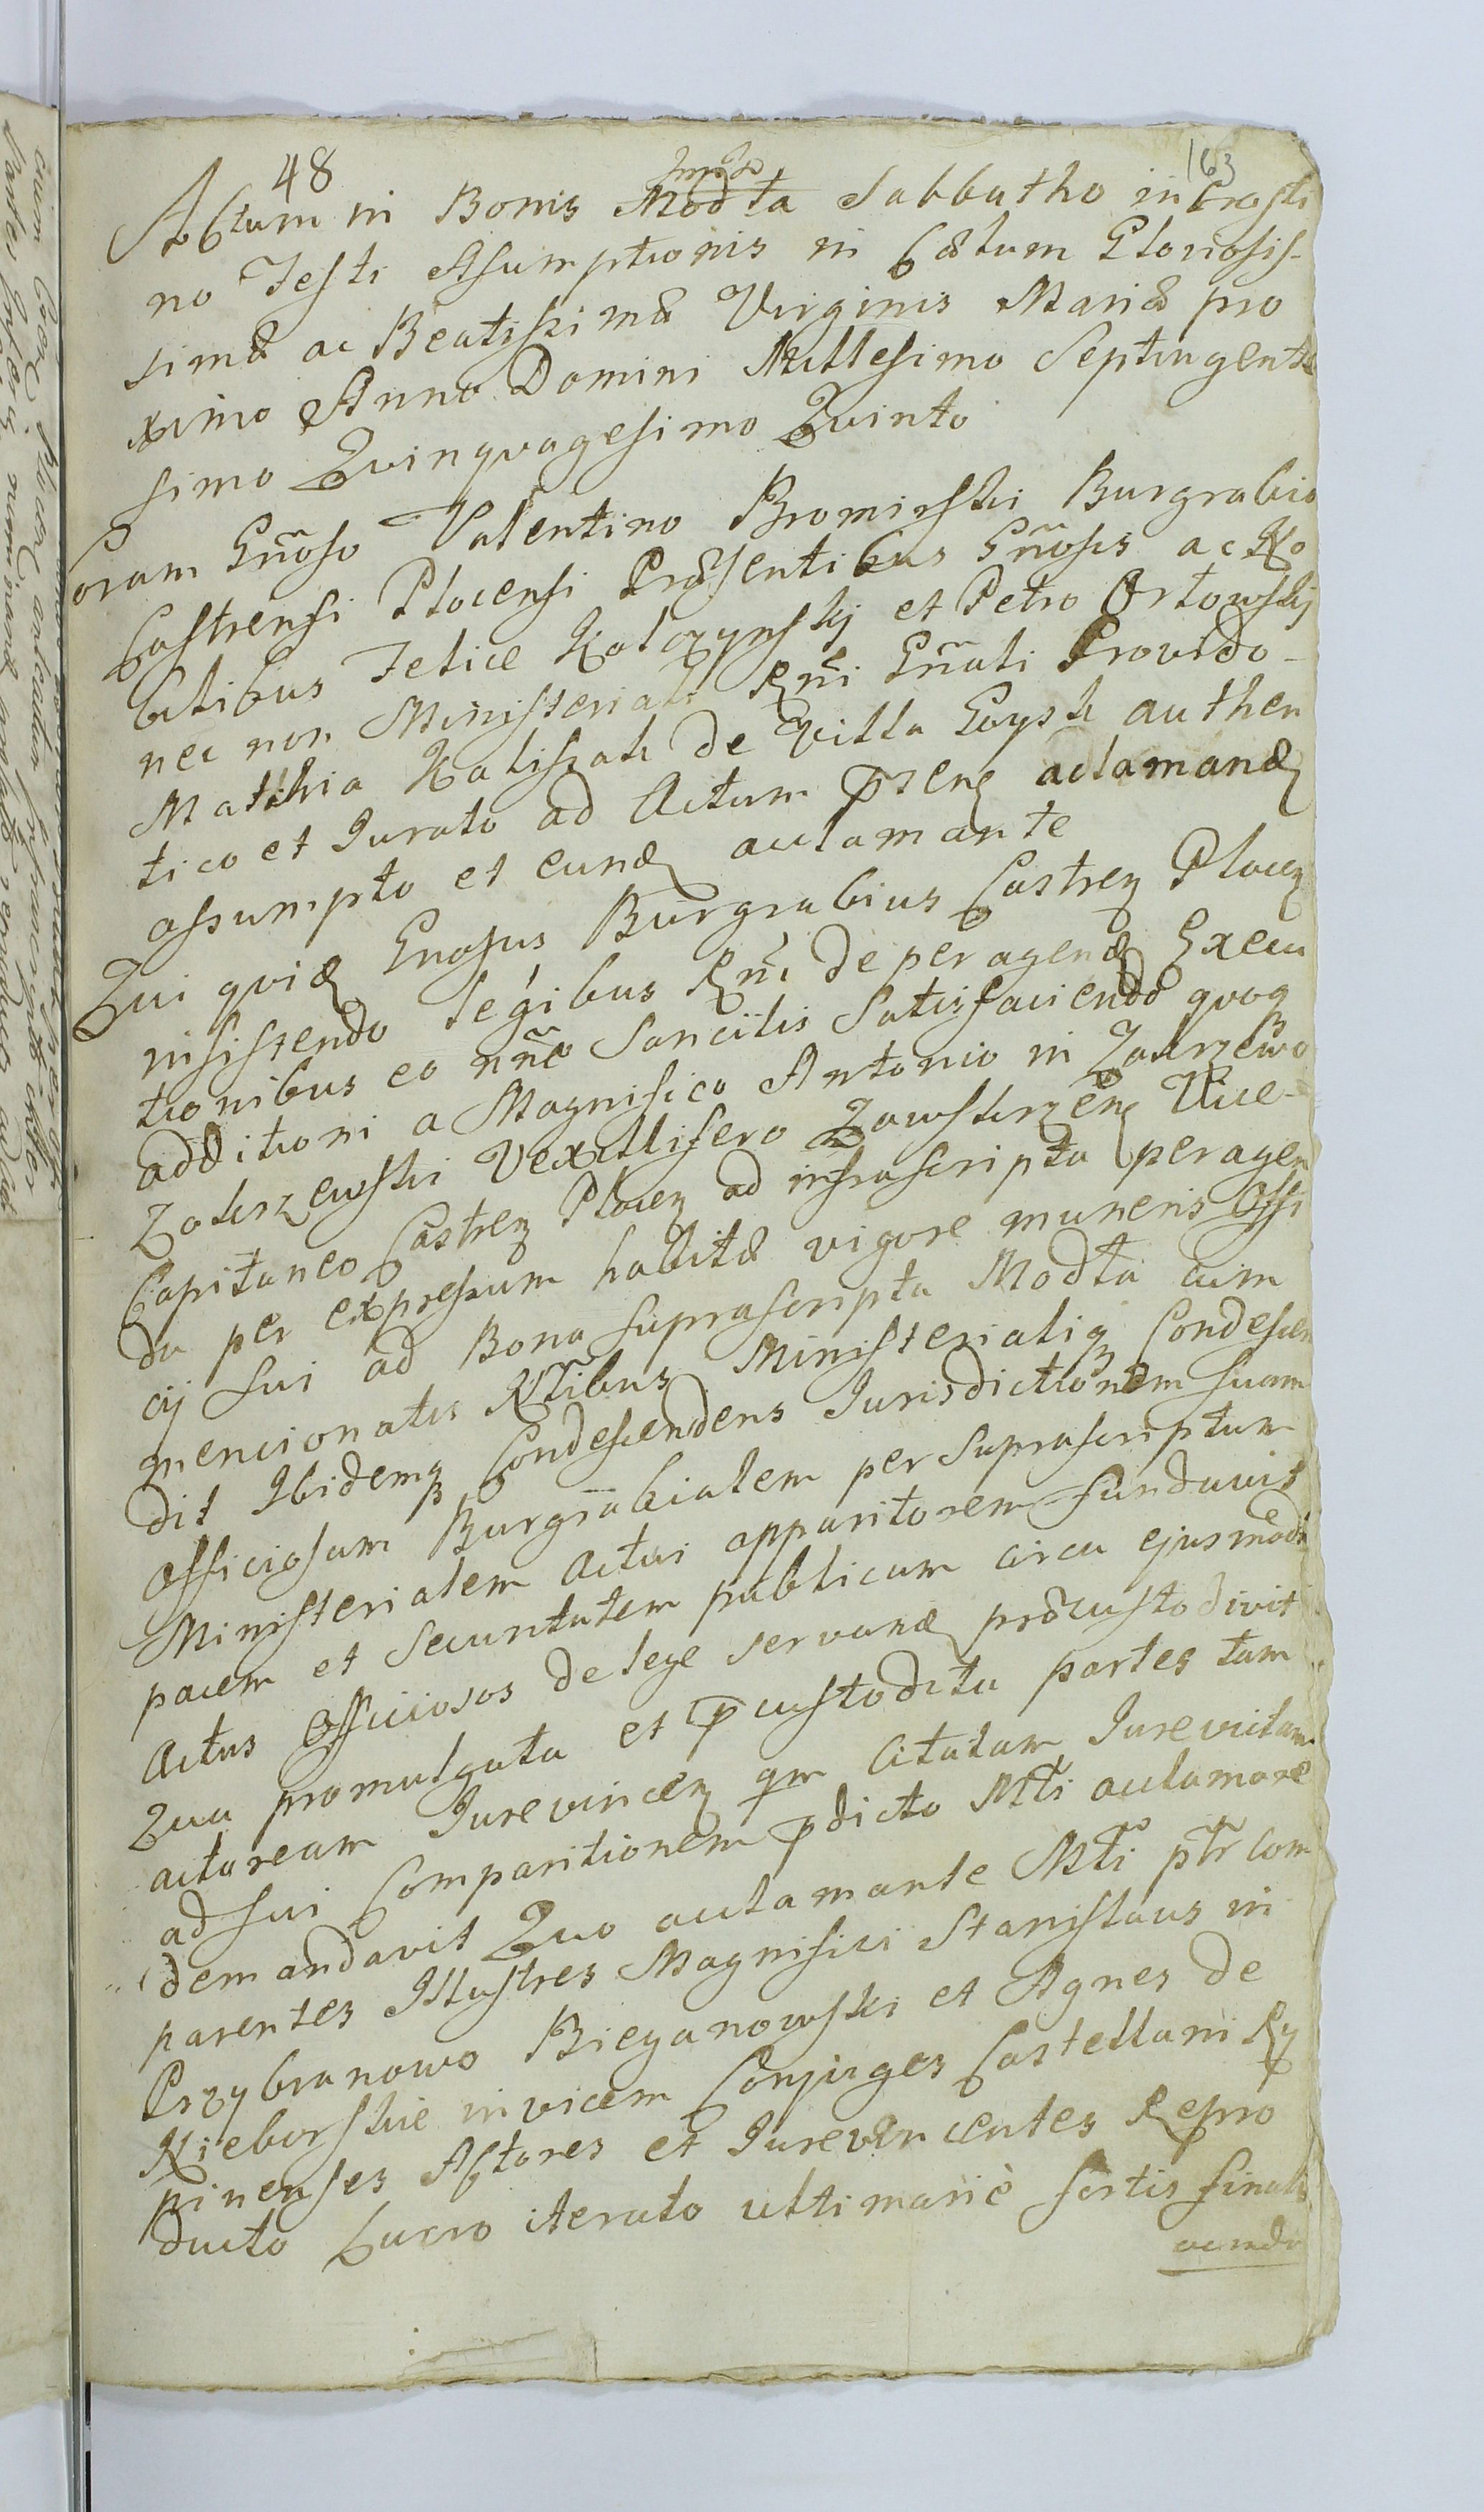 48
163
Actum in Bonis Modta Sabbatho in Crasti
no Festi Assumptionis in Cælum Gloriosis-
simæ ac Beatissimæ Virginis Mariæ pro
ximo Anno Domini Millesimo Septingente
simo Qvinqvagesimo Qvinto
Coram Gñoso Valentino Bromirski Burgrabio
Castrensi Plocensi Præsentibus Gñosis ac No
bilibus Felice Kolczynskij et Petro Orłowskij
nec non Ministeriali Rñi Gñali Provido
Mathia Kaliszak de Villa Goysk authen
tico et Jurato ad Actum p̄renz aclamandz
assumpto et eundz aclamante
Qui qvidz Gnosus Burgrabius Castrenz Plocenz
insistendo legibus Rñi de peragendz Execu
tionibus eo nñe Sancitis Satisfaciendo qvoqz
additioni a Magnifico Antonio in Zakrzewo
Zakrzewski Vexillifero Zawskrzenz Vice-
Capitaneo Castrenz Plocenz ad infrascripta peragen
da per expressum habitæ vigore muneris Offi
cij sui ad Bona suprascripta Modta cum
mencionatis Ntibus Ministerialiqz Condescen
dit Ibidemqz Condescendens Jurisdictionem suam
Officiosam Burgrabialem per Suprascriptum
Ministerialem Actui apparitorem fundavit
pacem et Securitatem publicam circa ejusmodi
Actus Officiosos de lege servandz procustodivit
Qua promulgata et p̄custodita partes tam
actoream Jurevincenz qm Citatam Jurevictam
ad sui Comparitionem p̄dicto Mti aclamare
demandavit Quo aclamante Mti ptr Com
parentes Illustres Magnifici Stanislaus in
Przybranowo Bieganowski et Agnes de
Nieborskie invicem Conjuges Castellani Ry
pinenses Actores et Jurevincentes Repro
ducto Lucro iterato ultimarie sortis finali